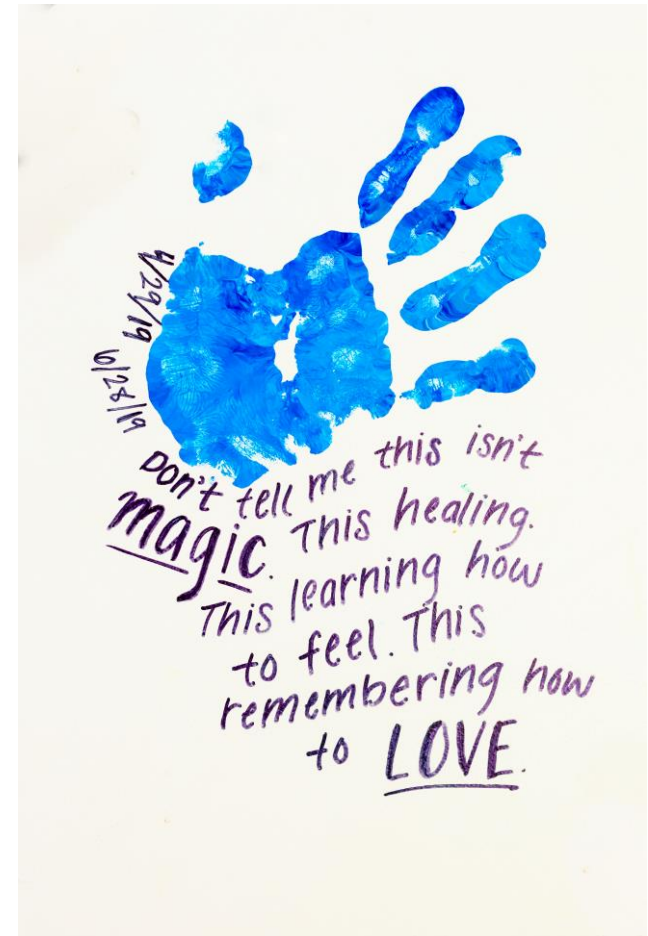 4/29/19
6/28/19
Don't tell me this isn't
magic. This healing.
This learning how
to feel. This
remembering how
to LOVE.